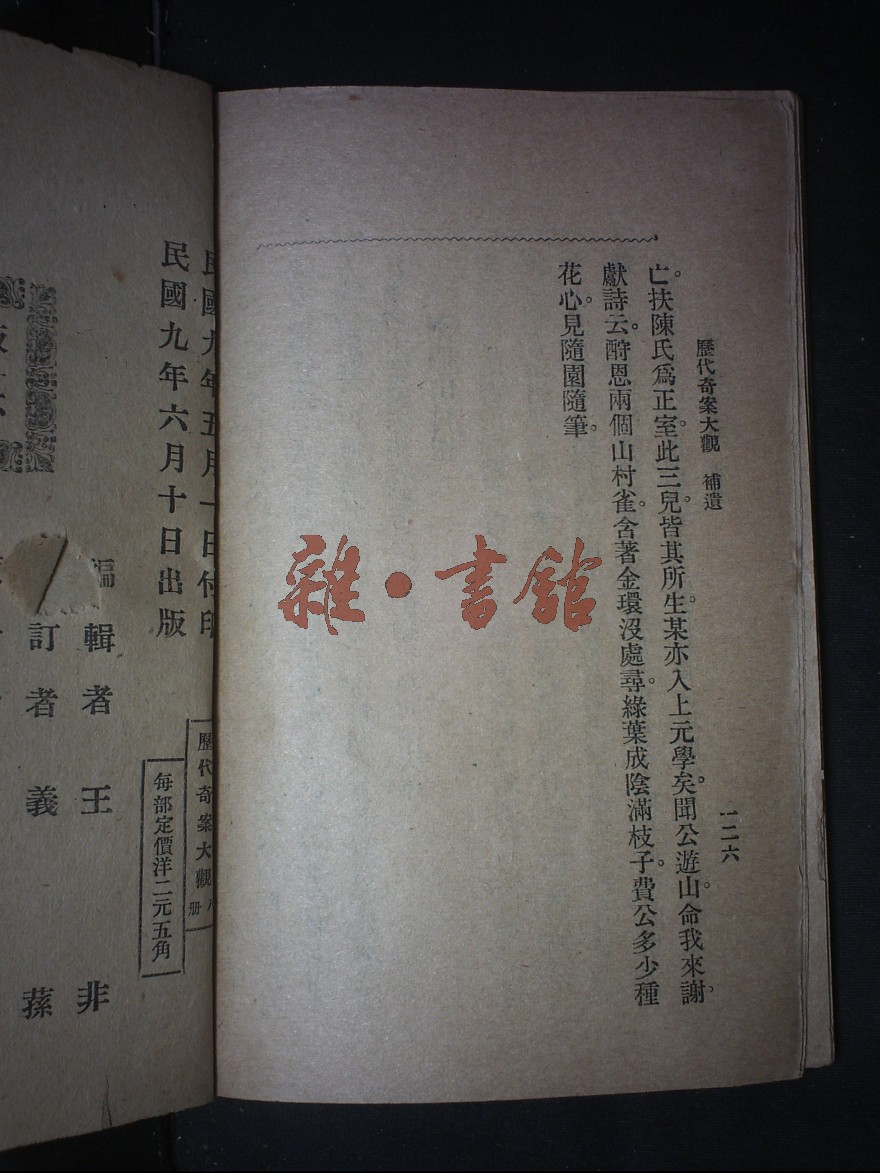 歷代奇案大觀　補遺
一二六
亡。扶陳氏爲正室。此三兒皆其所生。某亦入上元學矣。聞公遊山。命我來謝。
獻詩云。酧恩兩個山村雀。含著金環沒處尋。綠葉成陰滿枝子。費公多少種
花心。見隨園隨筆。
雜·書館
歷代奇案大觀
册
每部定價洋二元五角
民國九年五月一日付印
民國九年六月十日出版
編輯者王　非
訂者義　蓀